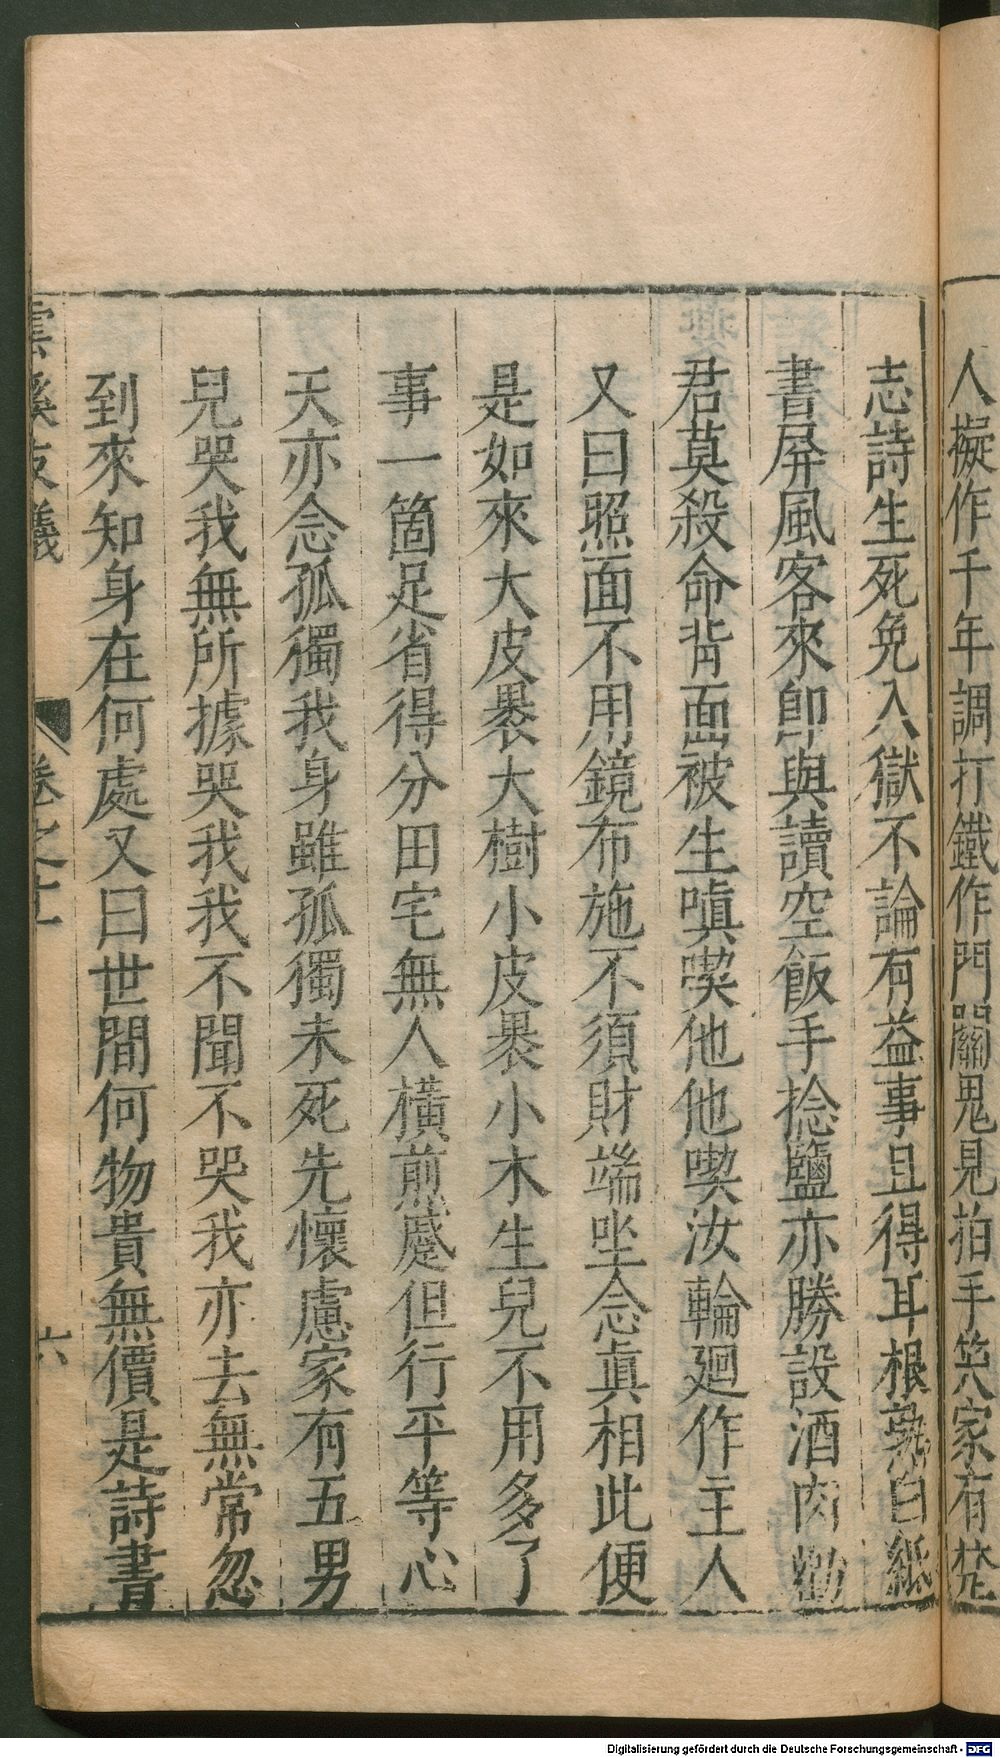 人擬作千年調打鐵作門關鬼見拍手笑家有梵
志詩生死免入獄不論有益事且得耳根熟白紙
書屏風客來即與讀空飯手捻鹽亦勝設酒肉勸
君莫殺命背面被生嗔喫他他喫汝輪廻作主人
又曰照面不用鏡布施不須財端坐念眞相此便
是如來大皮裹大樹小皮裹小木生兒不用多了
事一箇足省得分田宅無人橫煎蹙但行平等心
天亦念孤獨我身雖孤獨未死先懷慮家有五男
兒哭我無所據哭我我不聞不哭我亦去無常忽
到來知身在何處又曰世間何物貴無價是詩書
雲溪友議 卷之十一 六
Digitalisierung gefördert durch die Deutsche Forschungsgemeinschaft - DFG